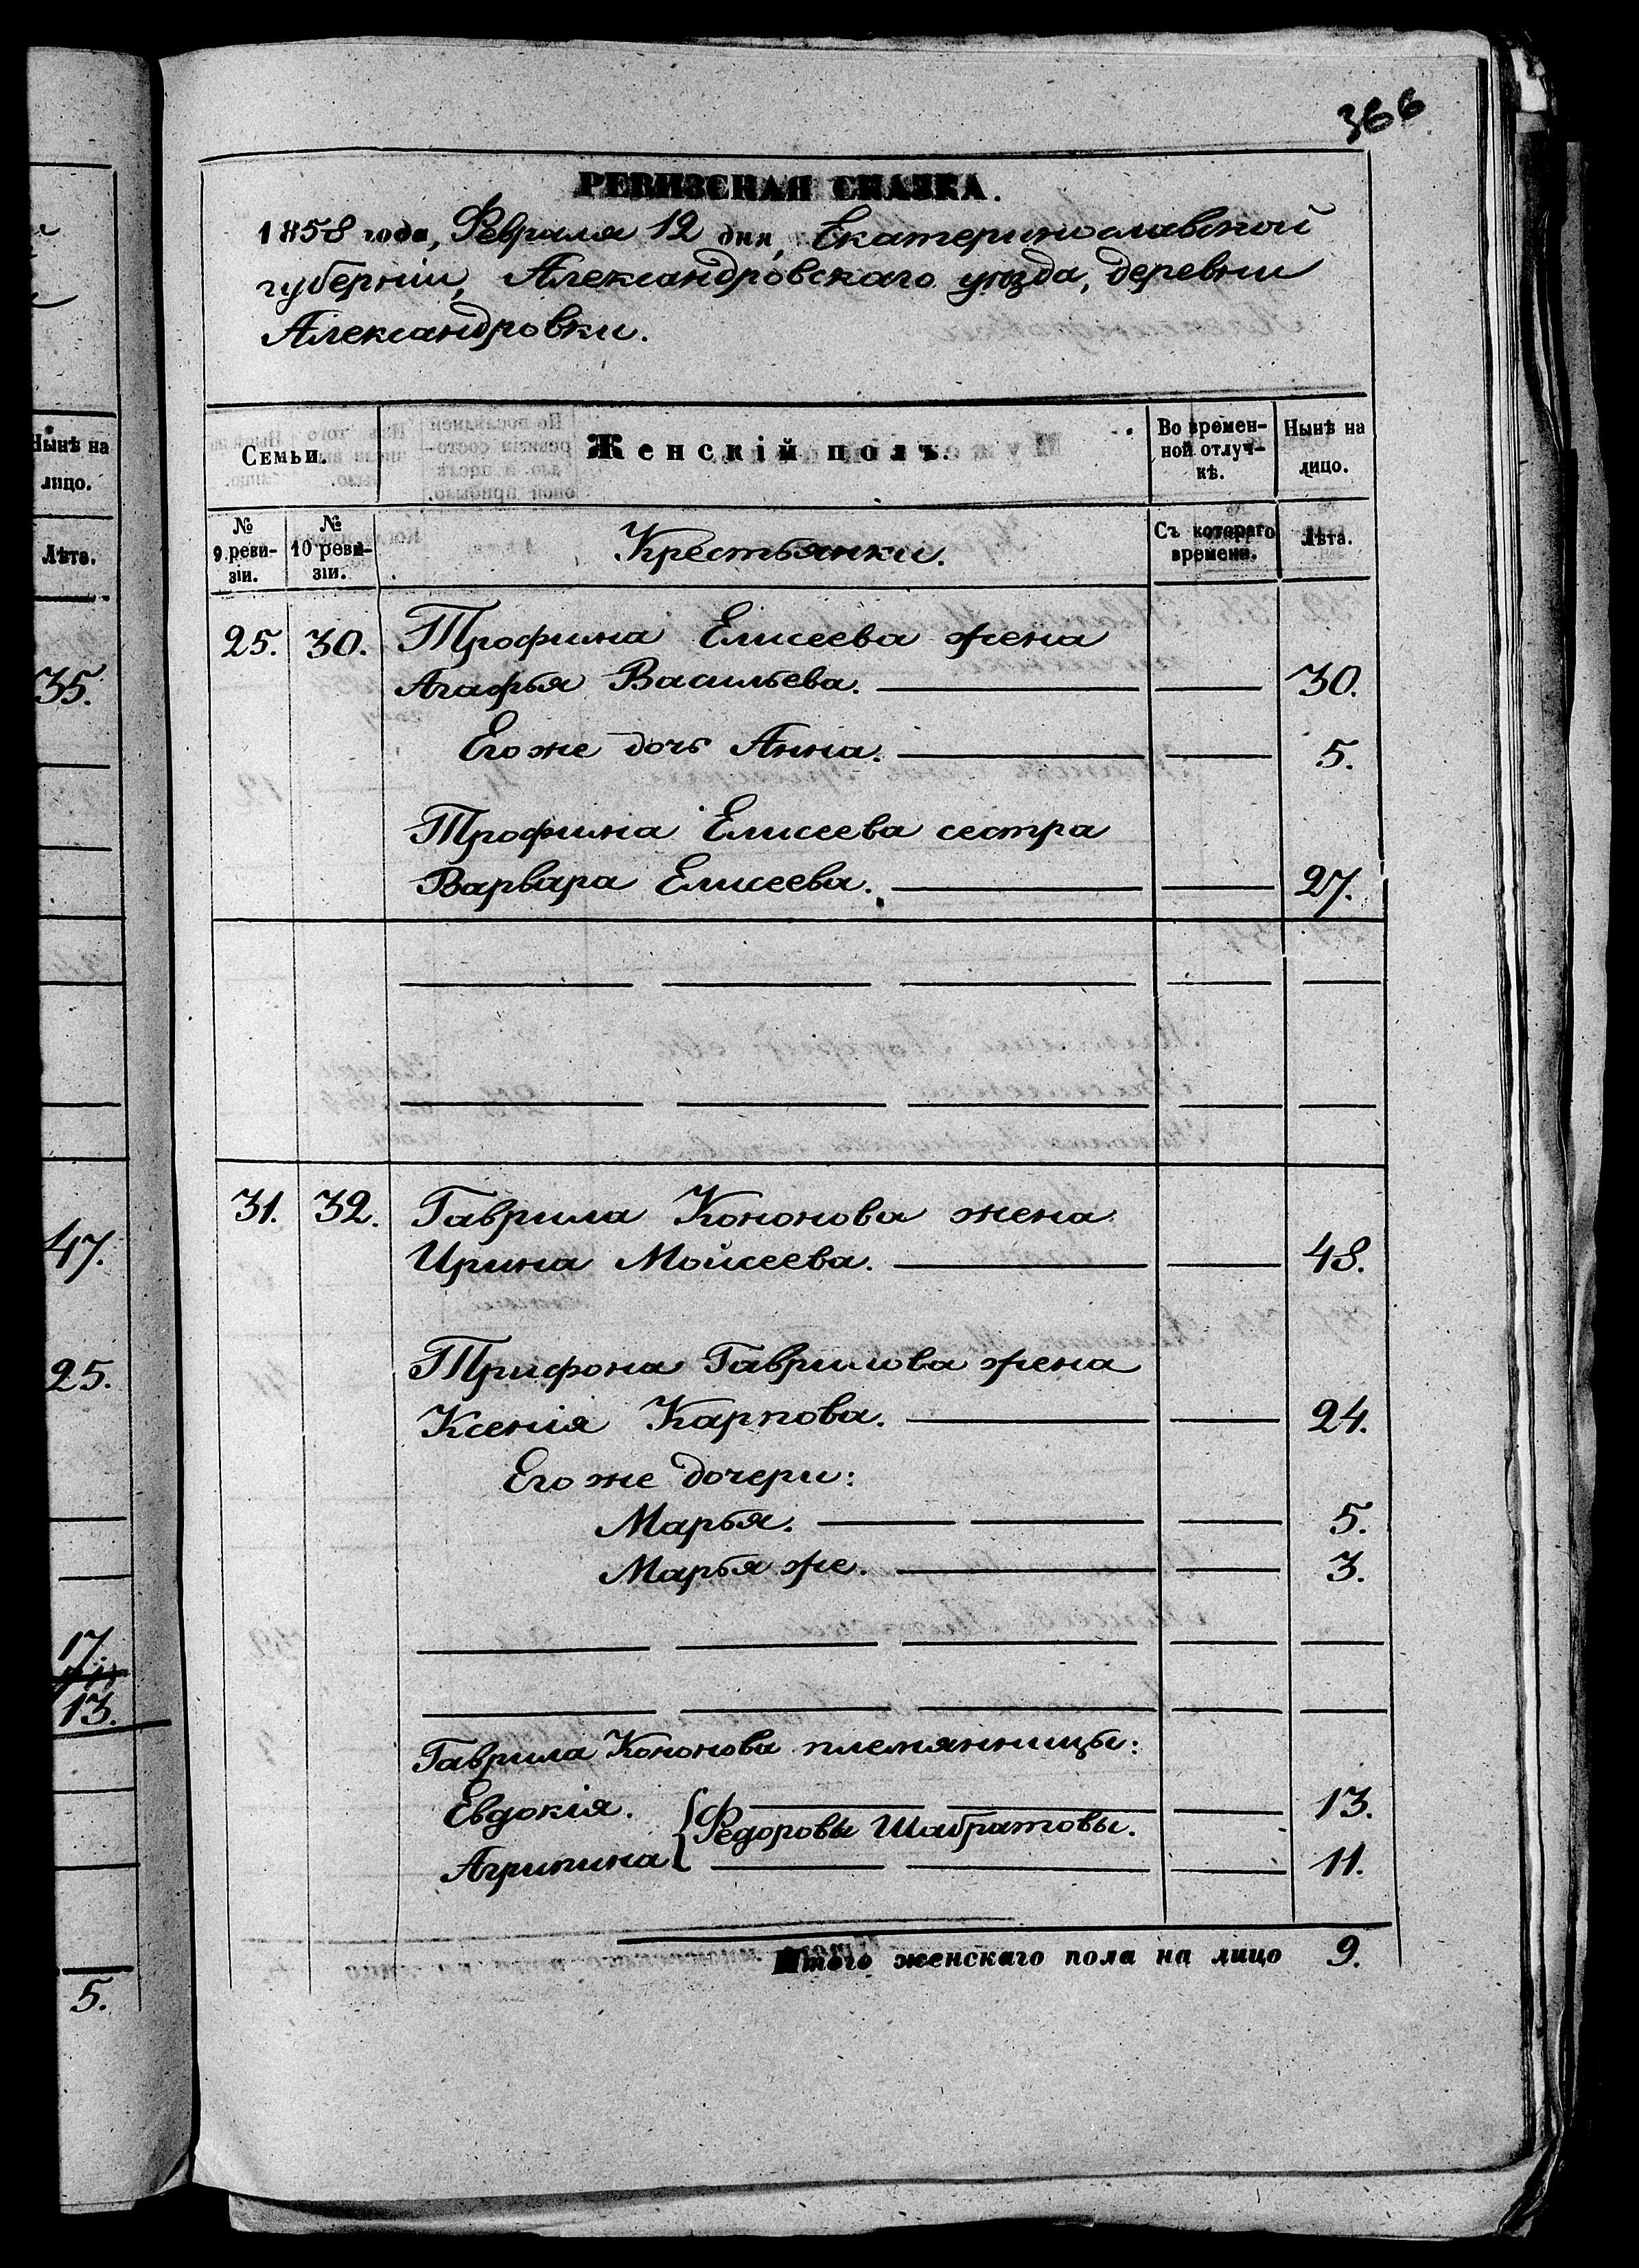 366
РЕВИЗСКАЯ СКАЗКА.
1858 года, Февраля 12 дня, Екатеринославской
губерніи, Александровскаго уѣзда, деревни
Александровки.
Семьи
Женскій полъ.
Во времен-
ной отлуч-
кѣ.
Нынѣ на
лицо.
№
9 реви-
зіи.
№
10 реви-
зіи.
Крестьянки.
Съ котораго
времени.
Лѣта.
25. 30. Трофима Елисеева жена
Агафья Васильева. 30.
Его же дочь Анна. 5.
Трофима Елисеева сестра
Варвара Елисеева. 27.
31. 32. Гаврила Кононова жена
Ирина Мойсеева. 48.
Трифона Гаврилова жена
Ксенія Карпова. 24.
Его же дочери:
Марья. 5.
Марья же. 3.
Гаврила Кононова племянницы:
Евдокія. 13.
Федоровы Шабратовы.
Агрипина 11.
Итого женскаго пола на лицо 9.
Нынѣ на
лицо.
Лѣта.
35.
47.
25.
17.
13.
5.